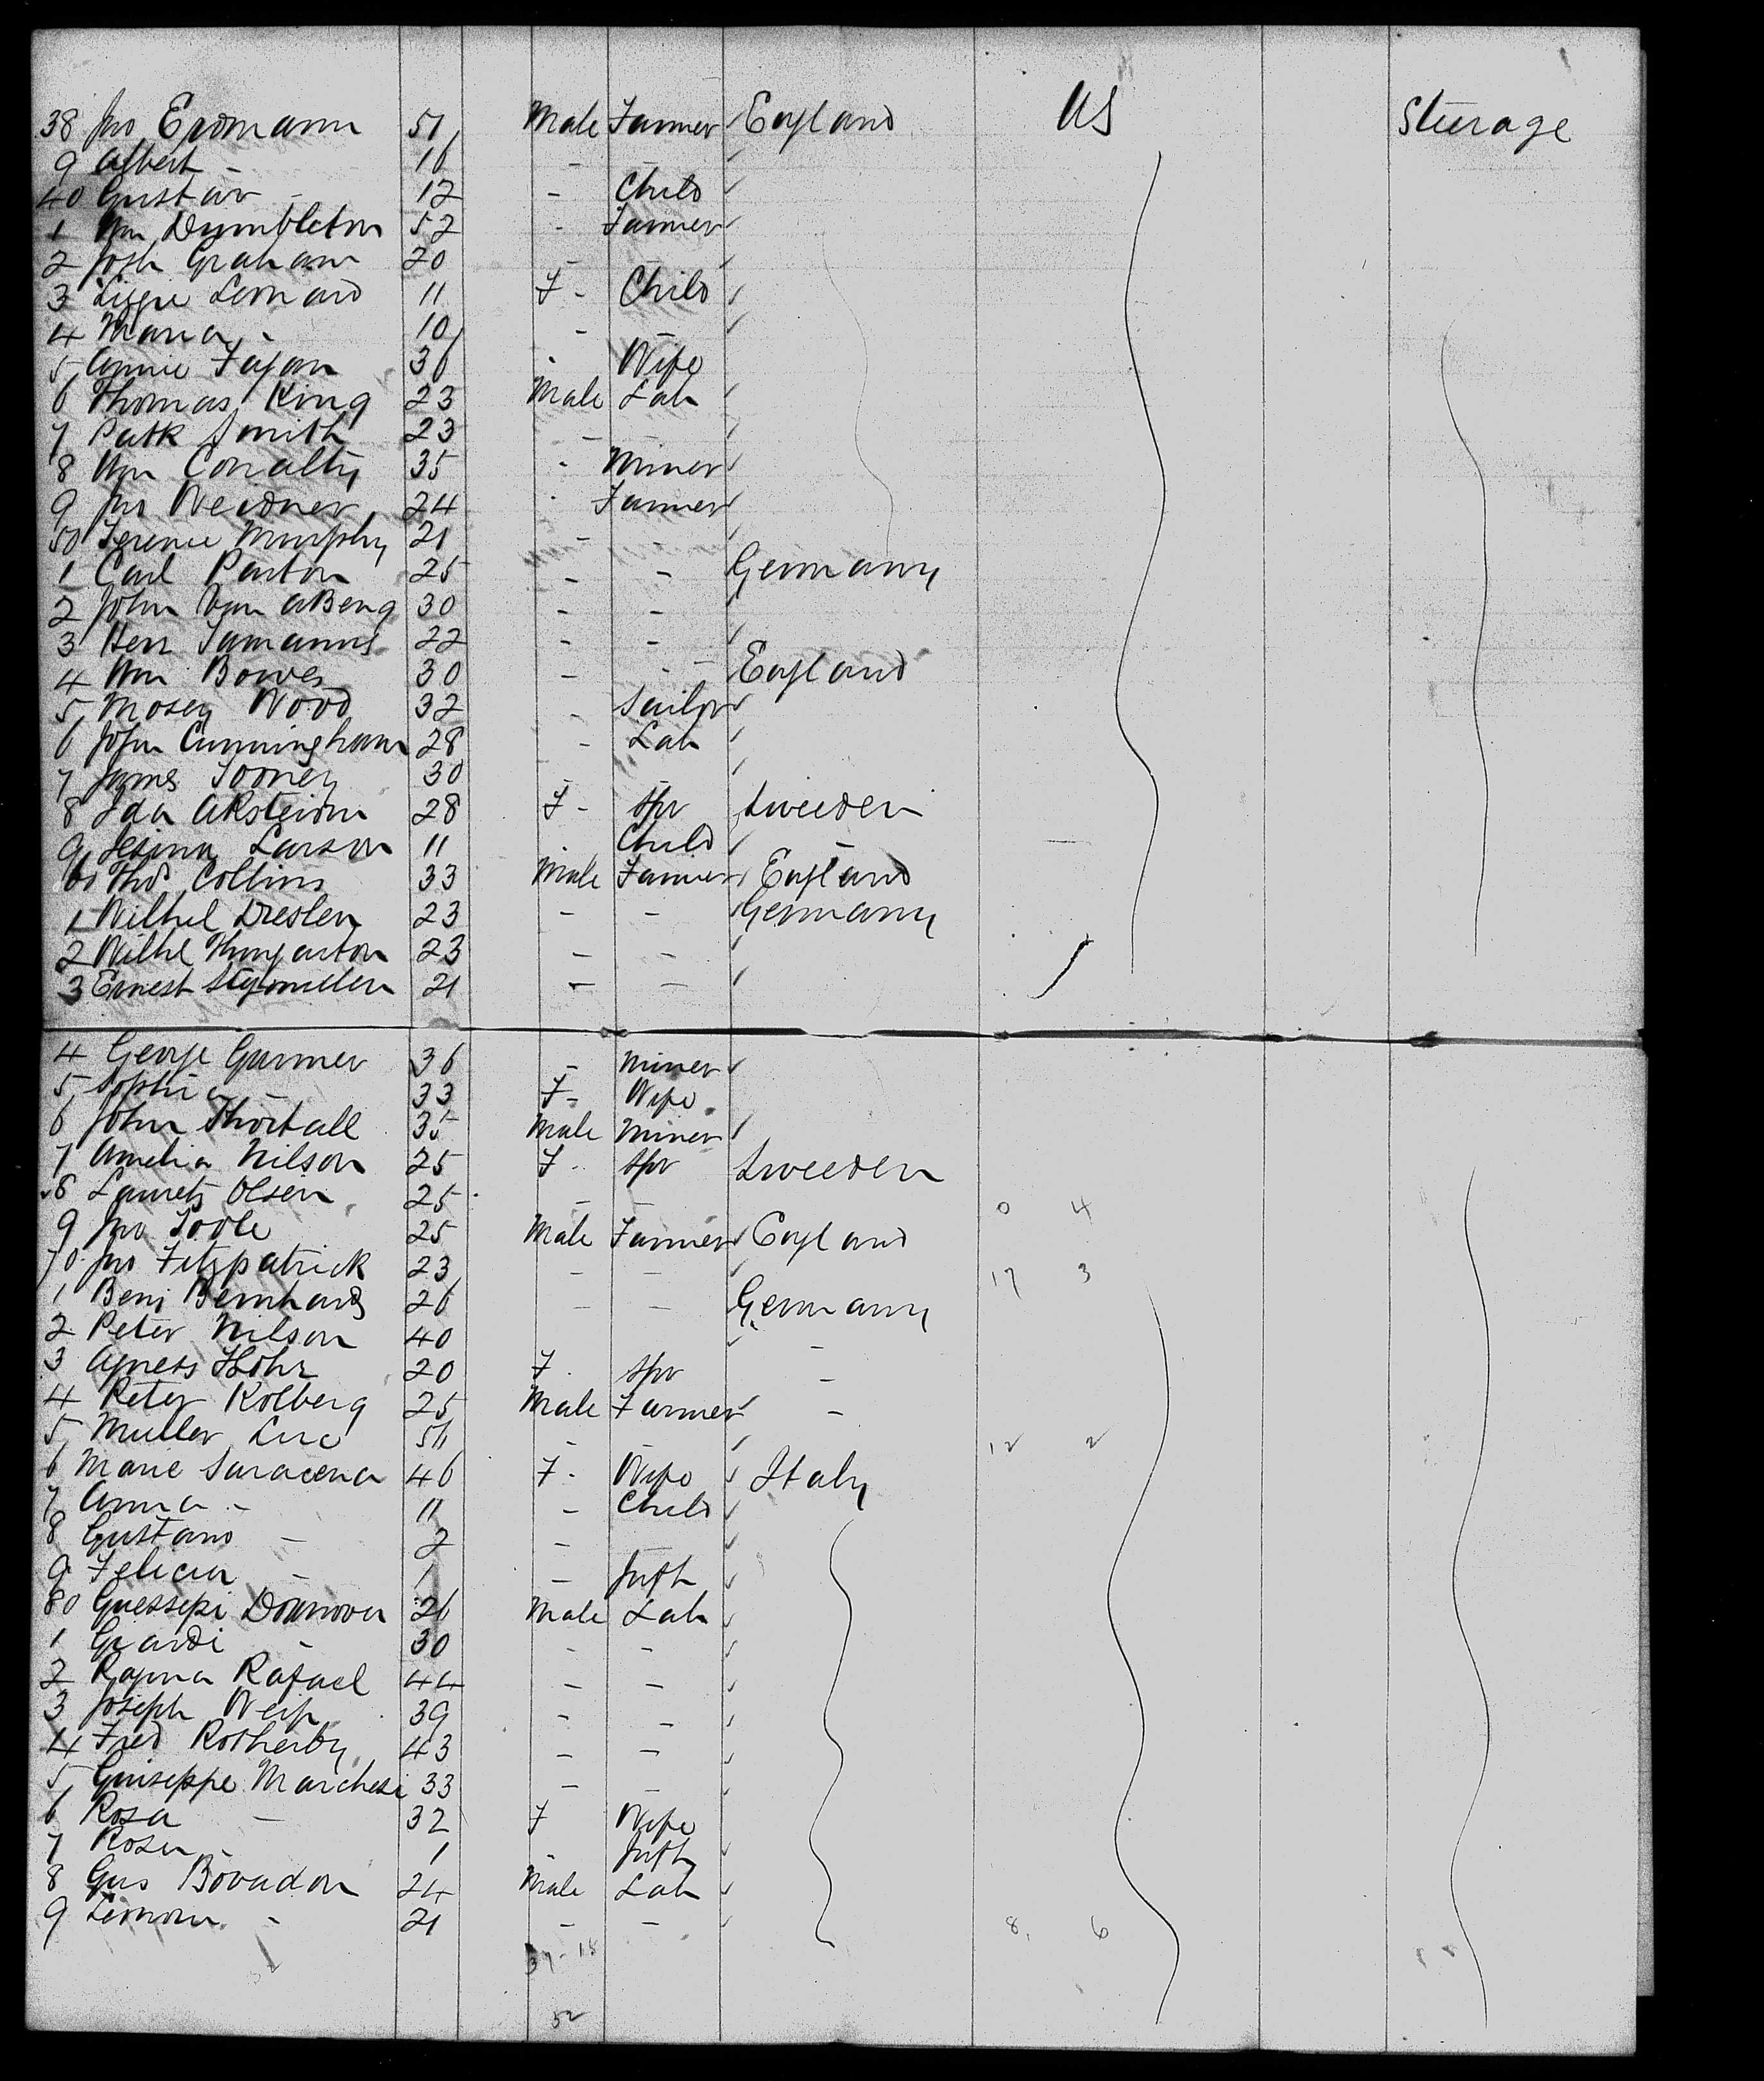 38 Jno Erdmann 51 Male Farmer England US Steerage
9 Albert - 16 - -
40 Gustav - 12 - Child
1 Wm Dumbleton 52 - Farmer
2 Josh Graham 20 - -
3 Lizzie Leonard 11 F - Child
4 Maria - 10 - -
5 Annie Fagan 36 - Wife
6 Thomas King 23 Male Lab
7 Patk Smith 23 - -
8 Wm Conalty 35 - Miner
9 Jno Weidner 24 - Farmer
50 Terence Murphy 21 - -
1 Carl Parton 25 - - Germany
2 John Van 30 - -
3 Herr 22 - -
4 Wm Bowes 30 - - England
5 Mosey Wood 32 - Sailor
6 John Cunningham 28 - Lab
7 James Tooney 30
8 Ida 28 F - Spr Sweeden
9 Larson 11 Child -
60 Thos Collins 33 Male Farmer England
1 Wilhel Dreslen 23 - - Germany
2 Wilhl 23 - -
3 Ernest 21 - -
4 George Garmer 36 - Miner
5 Sophia - 33 F - Wife
6 John Shortall 35 Male Miner
7 Amelia Nilson 25 F - Spr Sweeden
8 Lauretz Olsen 25 - - 0 4
9 Jno Toole 25 Male Farmer England
70 Jno Fitzpatrick 23 - - 17 3
1 Benj Bernhard 26 - - Germany
2 Peter Nilson 40 -
3 Agness 20 F - Spr -
4 Peter Kolberg 25 Male Farmer -
5 Muller Luc - - 12 2
6 Marie Saracena 46 F - Wife Italy
7 Anna - 11 - Child
8 Gustavo - 2 - -
9 Felicia - 1 - Inft
80 Guessepi 26 Male Lab
1 Giardi - 30 - -
2 Rafael 44 - -
3 Joseph Weip 39 - -
4 Fred Rotherby 43 - -
5 Guiseppe Marchesi 33 - -
6 Rosa - 32 F Wife
7 Rosa - 1 - Inft
8 Gus Bovadon 24 Male Lab
9 - 21 - - 8 6
37-15
52